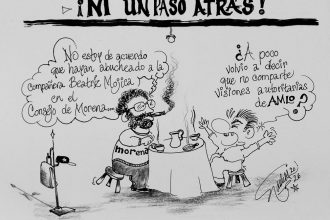 ¡NI UN PASO ATRÁS!
NO estoy de acuerdo
que hayan abucheado a la
compañera Beatriz Mojica
en el
Consejo de Morena...
¿A poco
volvió a decir
que no comparte
visiones autoritarias
de AMLO?
morena